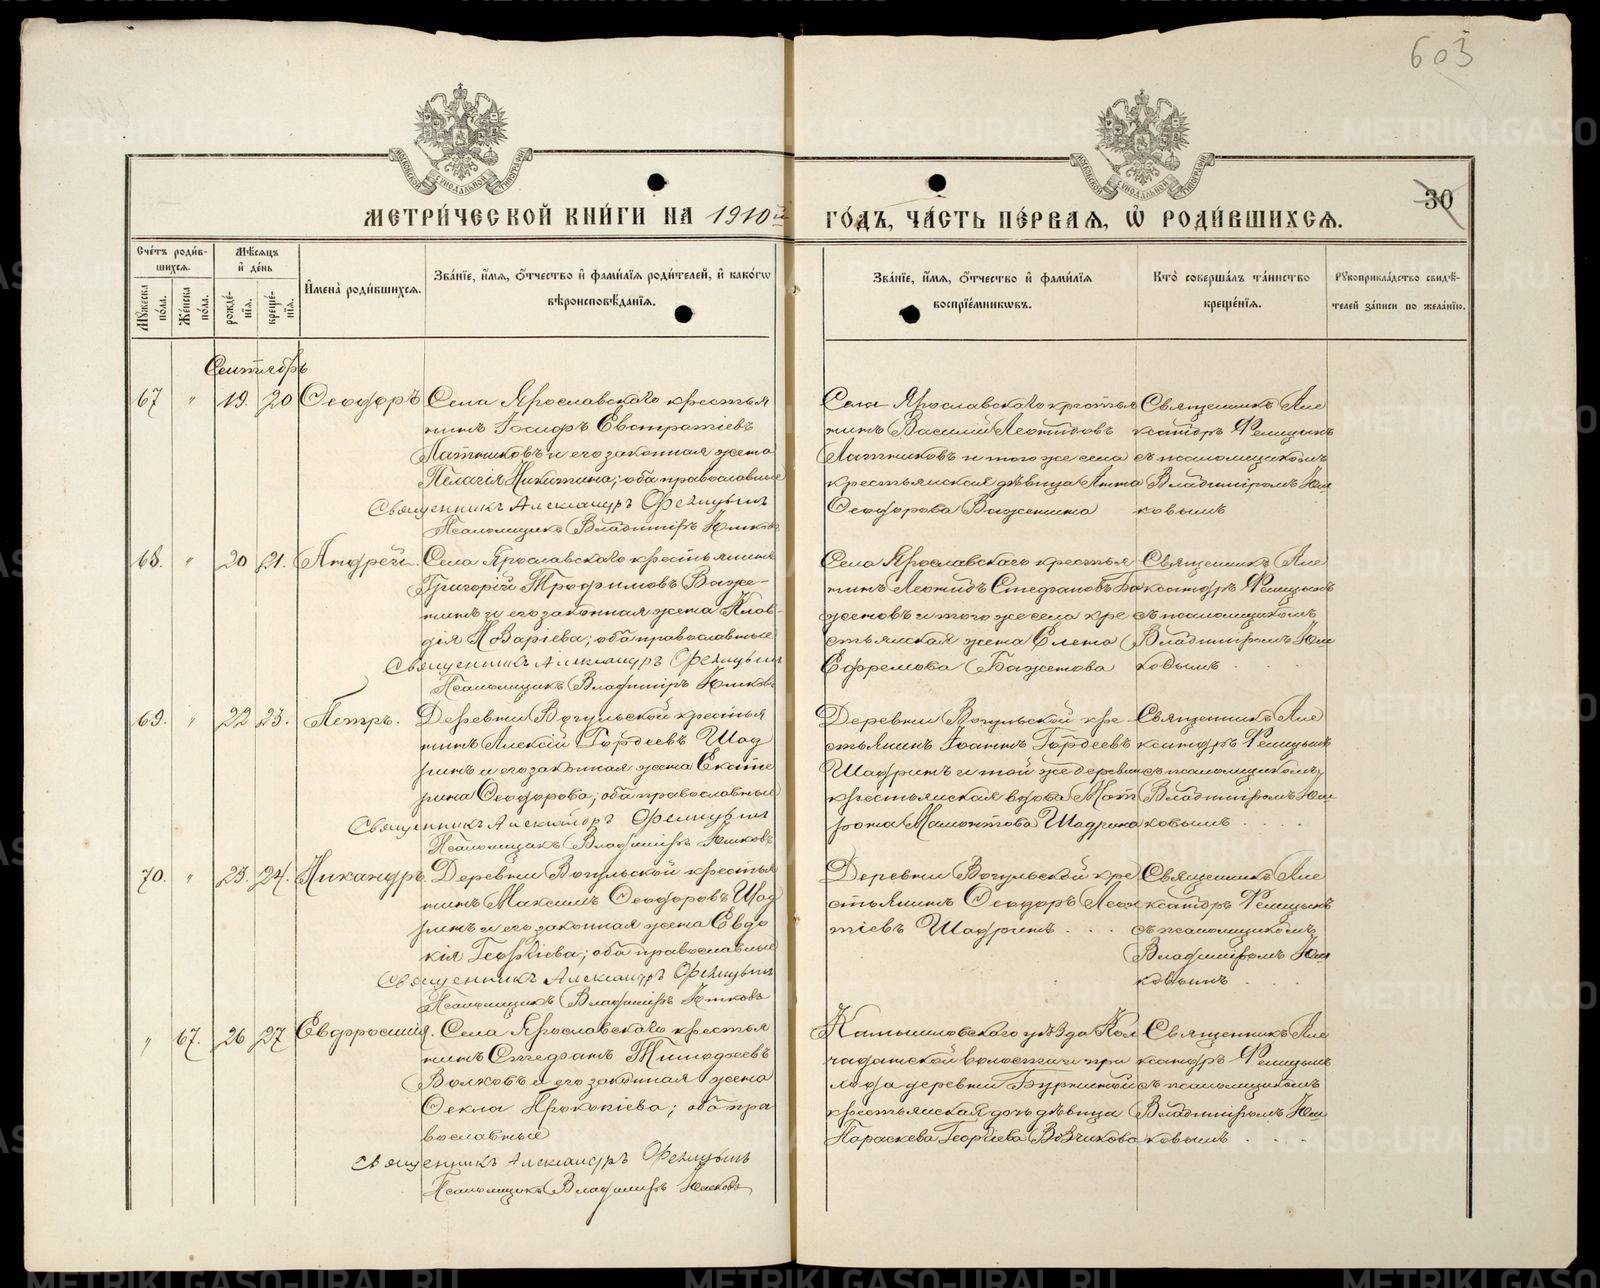 603
МОСКОВСКОЙ СѴНОДАЛЬНОЙ ТИПОГРАФІИ
МОСКОВСКОЙ СѴНОДАЛЬНОЙ ТИПОГРАФІИ
30
МЕТРИ́ЧЕСКОЙ КНИ́ГИ НА 1910й
ГО́ДЪ, ЧА́СТЬ ПЕ́РВАѦ, Ѡ҆ РОДИ́ВШИХСѦ.
Сче́тъ роди́в-
шихсѧ.
Мѣ́сѧцъ
и҆ де́нь
Мꙋ́жеска по́ла.
Же́нска по́ла.
рожде́-
нїѧ.
креще́-
нїѧ.
И҆мена̀ роди́вшихсѧ.
Зва́нїе, и҆́мѧ, ѻ҆́тчество и҆ фами́лїѧ роди́телей, и҆ како́гѡ
вѣроисповѣ́данїѧ.
Зва́нїе, и҆́мѧ, ѻ҆́тчество и҆ фами́лїѧ
воспрїе́мникѡвъ.
Кто̀ соверша́лъ та́инство
креще́нїѧ.
Рꙋкоприкла́дство свидѣ́-
телей за́писи по жела́нїю.
Сентябрь
67 " 19. 20 Ѳеодоръ
Села Ярославскаго крестья
нинъ Іосифъ Евстратіевъ
Латниковъ и его законная жена
Пелагія Никитина; оба православные
Священникъ Александръ Фелицынъ
Псаломщикъ Владиміръ Юшковъ
Села Ярославскаго крестья
нинъ Василій Леонтіевъ
Латниковъ и того же села
крестьянская дѣвица Анна
Ѳеодорова Баженина
Священникъ Але
ксандръ Фелицынъ
съ псаломщикомъ
Владиміромъ Юш
ковымъ
68. " 20 21. Андрей.
Села Ярославскаго крестьянинъ
Григорій Трофимовъ Баже-
нинъ и его законная жена Клав-
дія Назаріева; оба православные
Священникъ Александръ Фелицынъ
Псаломщикъ Владиміръ Юшковъ
Села Ярославскаго крестья
нинъ Леонидъ Стефановъ Ба
женовъ и того же села кре
стьянская жена Елена
Ефремова Баженова
Священникъ Але
ксандръ Фелицынъ
съ псаломщикомъ
Владиміромъ Юш
ковымъ
69. " 22 23. Петръ.
Деревни Вогульской крестья
нинъ Алексій Гордеевъ Шад
ринъ и его законная жена Екате
рина Ѳеодорова; оба православные
Священникъ Александръ Фелицынъ
Псаломщикъ Владиміръ Юшковъ
Деревни Вогульской кре
стьянинъ Іоаннъ Гордеевъ
Шадринъ и той же деревни
крестьянская вдова Мат
рона Мамонтова Шадрина
Священникъ Але
ксандръ Фелицынъ
съ псаломщикомъ
Владиміромъ Юш
ковымъ
70. " 23. 24. Никандръ.
Деревни Вогульской крестья
нинъ Максимъ Ѳеодоровъ Шад
ринъ и его законная жена Евдо
кія Георгіева; оба православные
Священникъ Александръ Фелицынъ
Псаломщикъ Владиміръ Юшковъ
Деревни Вогульской кре
стьянинъ Ѳеодоръ Леон
тіевъ Шадринъ
Священникъ Але
ксандръ Фелицынъ
съ псаломщикомъ
Владиміромъ Юш
ковымъ
" 67. 26 27 Евфросинія.
Села Ярославскаго крестья
нинъ Стефанъ Тимофеевъ
Волковъ и его законная жена
Ѳекла Прокопіева; оба пра
вославные
Священникъ Александръ Фелицынъ
Псаломщикъ Владиміръ Юшковъ
Камышловскаго уѣзда
волости и при
хода деревни
крестьянская дочь дѣвица
Параскева Георгіева
Священникъ Але
ксандръ Фелицынъ
съ псаломщикомъ
Владиміромъ Юш
ковымъ
METRIKI.GASO-URAL.RU